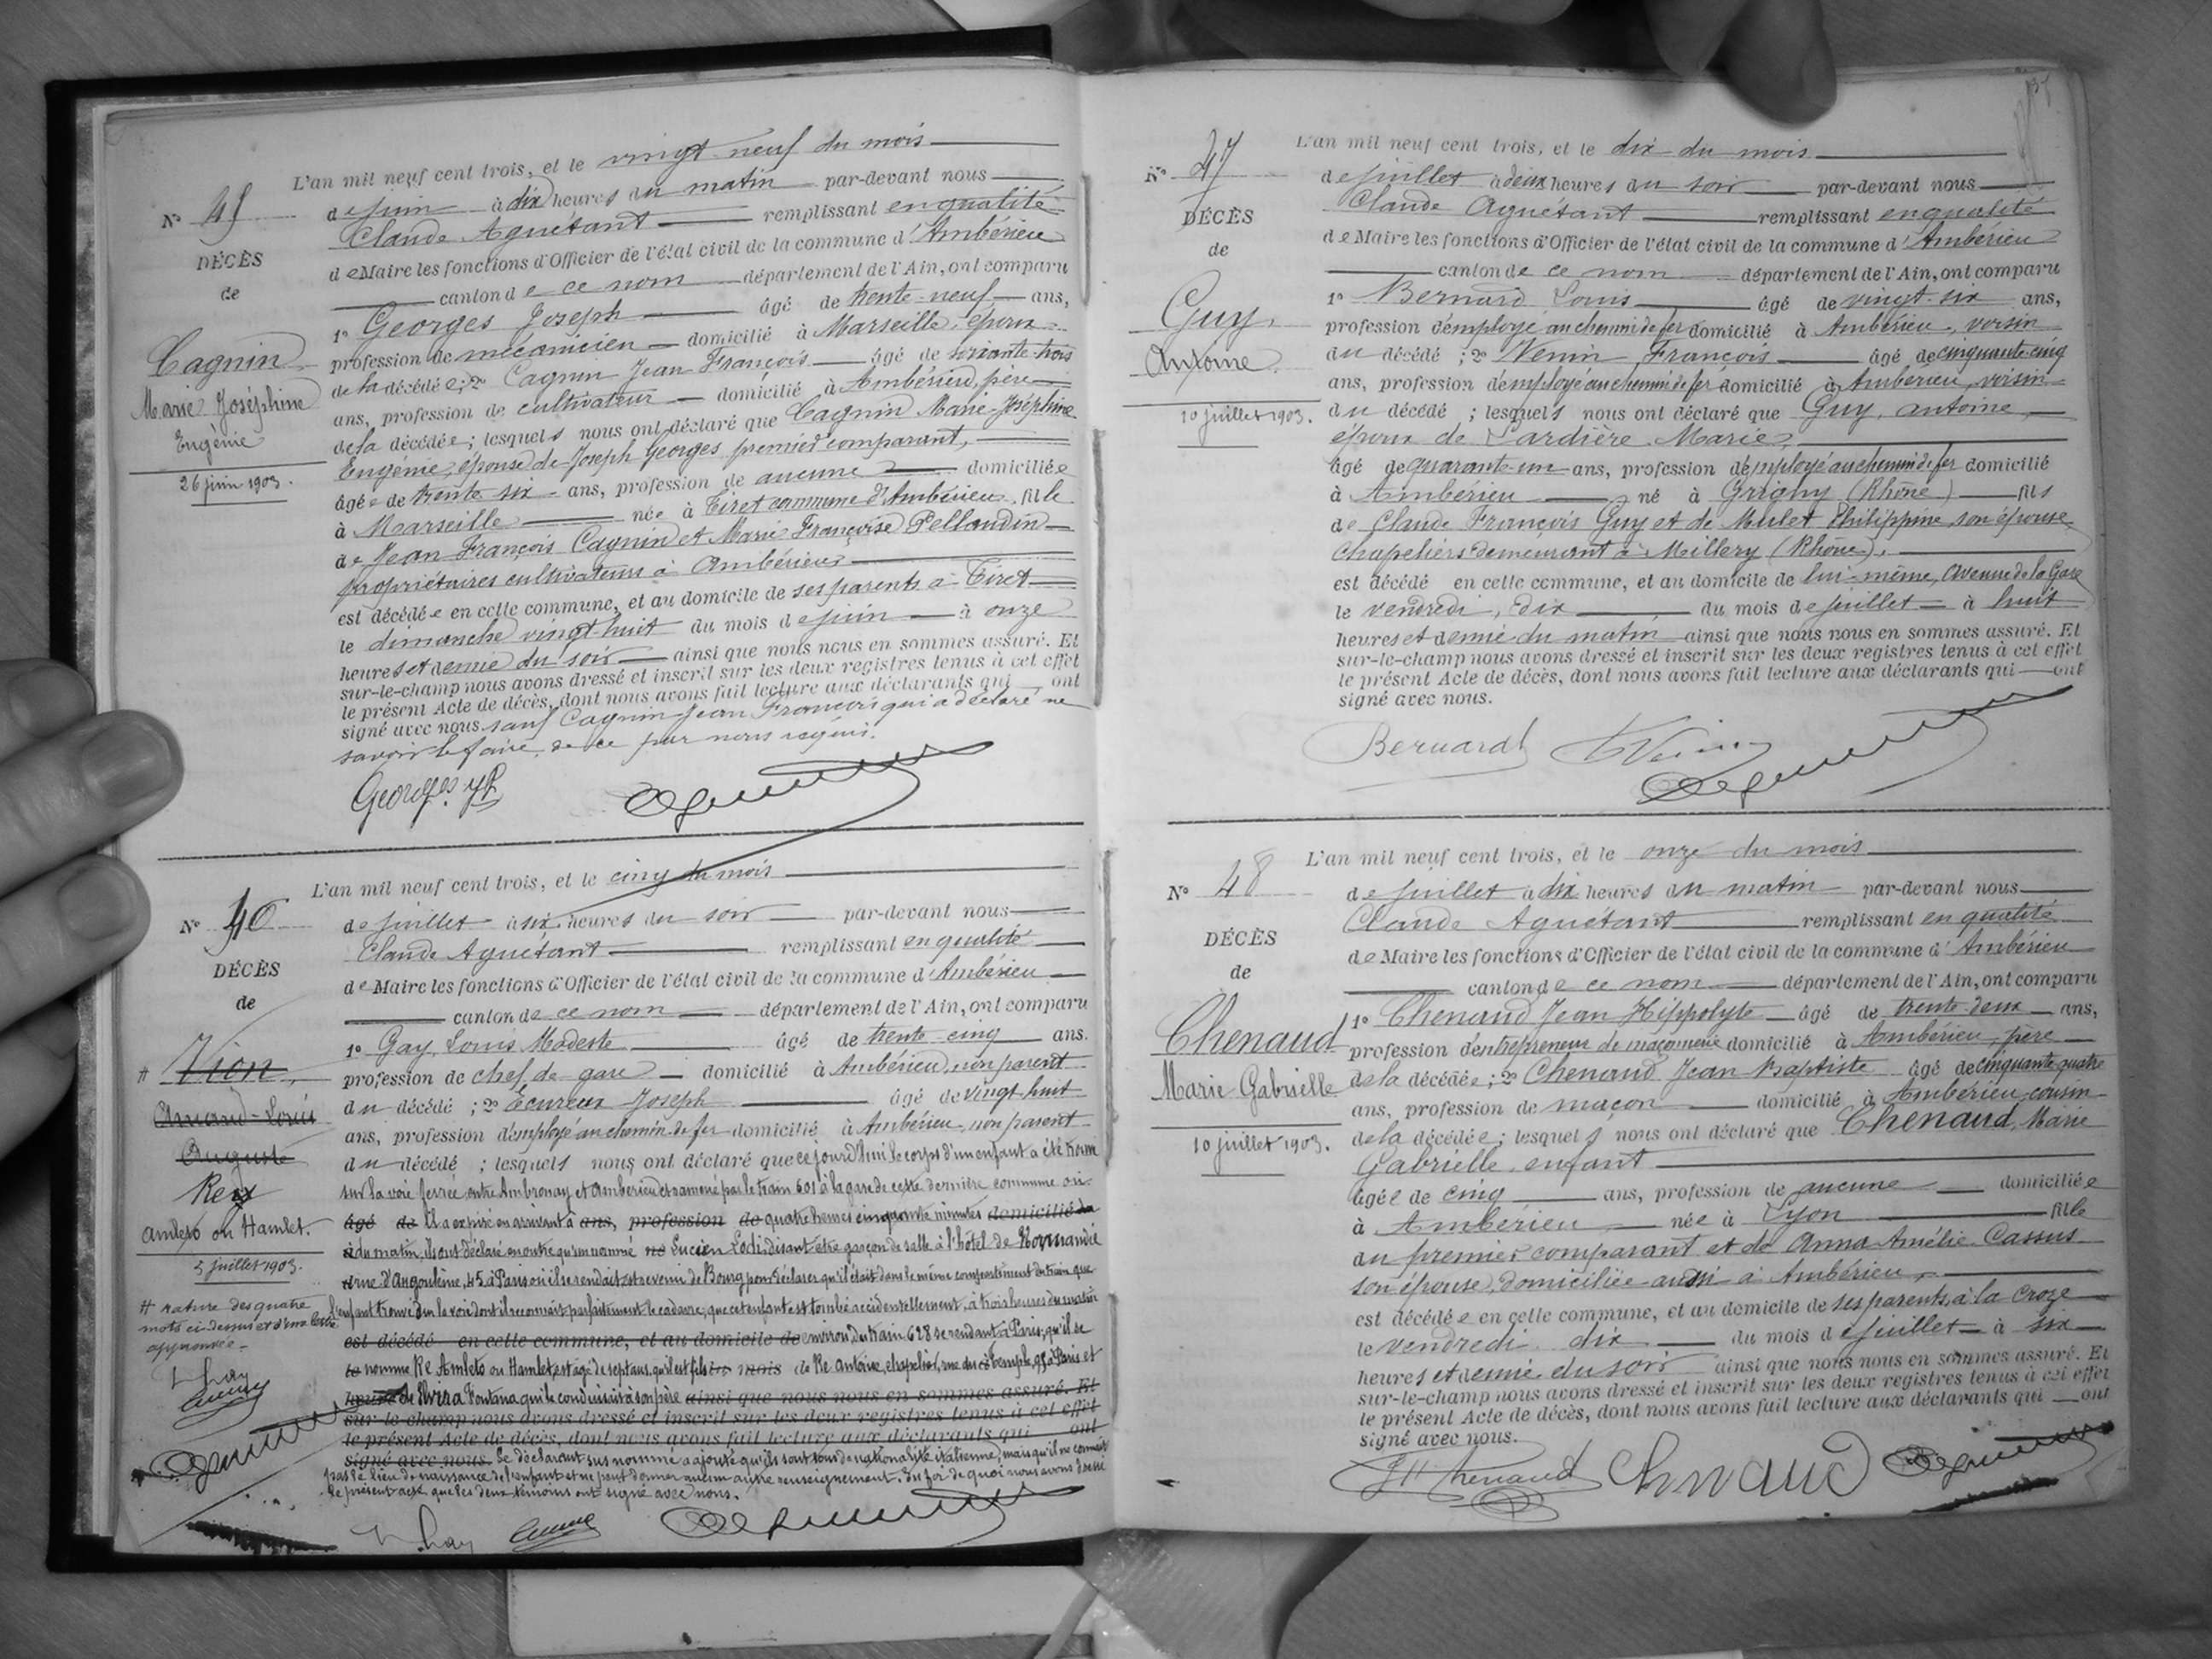 L'an mil neuf cent trois, et le vingt-neuf du mois
N° 45
de juin à dix heures du matin par-devant nous
Claude Aguétant remplissant en qualité
DÉCÈS
de Maire les fonctions d'Officier de l'état civil de la commune d'Ambérieu
de
canton de ce nom département de l'Ain, ont comparu
1° Georges Joseph âgé de trente-neuf ans,
Cagnin
profession de mécanicien domicilié à Marseille, époux
Marie Joséphine
de la décédée; 2° Cagnin Jean François âgé de soixante-trois
Eugénie
ans, profession de cultivateur domicilié à Ambérieu, père
26 juin 1903.
de la décédée; lesquels nous ont déclaré que Cagnin Marie-Joséphine
Eugénie, épouse de Joseph Georges premier comparant,
âgée de trente six ans, profession de aucune domiciliée
à Marseille née à Tiret commune d'Ambérieu fille
de Jean François Cagnin et Marie Françoise Pellaudin
propriétaires cultivateurs à Ambérieu
est décédée en cette commune, et au domicile de ses parents à Tiret
le dimanche vingt-huit du mois de juin à onze
heures et demie du soir ainsi que nous nous en sommes assuré. Et
sur-le-champ nous avons dressé et inscrit sur les deux registres tenus à cet effet
le présent Acte de décès, dont nous avons fait lecture aux déclarants qui ont
signé avec nous sauf Cagnin Jean François qui a déclaré ne
savoir le faire, de ce par nous requis.
Georges
L'an mil neuf cent trois, et le cinq du mois
N° 46
de juillet à six heures du soir par-devant nous
Claude Aguétant remplissant en qualité
DÉCÈS
de Maire les fonctions d'Officier de l'état civil de la commune d'Ambérieu
de
canton de ce nom département de l'Ain, ont comparu
1° Gay Louis Modeste âgé de trente cinq ans.
# Vion
profession de chef de gare domicilié à Ambérieu, non parent
Amand-Louis
du décédé; 2° Écureux Joseph âgé de vingt huit
Auguste
ans, profession d'employé au chemin de fer domicilié à Ambérieu, non parent
Rex
du décédé; lesquels nous ont déclaré que ce jourd'hui le corps d'un enfant a été trouvé
Amleto ou Hamlet.
sur la voie ferrée entre Ambronay et Ambérieu et ramené par le train 601 à la gare de cette dernière commune où
5 juillet 1903.
âgé de il a expiré en arrivant à ans, profession de quatre heures cinquante minutes domicilié
à du matin, ils ont déclaré en outre qu'un nommé né Lucien Lodi, disant être garçon de salle à l'hôtel de Normandie
rue d'Angoulême, 45 à Paris où il se rendait est revenu de Bourg pour déclarer qu'il était dans le même compartiment du train que
# rature des quatre
l'enfant trouvé sur la voie dont il reconnait parfaitement le cadavre, que cet enfant est tombé accidentellement, à trois heures du matin
mots ci-dessus et d'une lettre
approuvée.
est décédé en cette commune, et au domicile de environ du train 628 se rendant à Paris, qu'il se
le nomme Re Amleto ou Hamlet, est âgé de sept ans, qu'il est fils mois de Re Antoine, chapelier, rue du Temple, à Paris et
de Elvira Fontana qui le conduisait à son père ainsi que nous nous en sommes assuré. Et
sur-le-champ nous avons dressé et inscrit sur les deux registres tenus à cet effet
le présent Acte de décès, dont nous avons fait lecture aux déclarants qui ont
signé avec nous. Le déclarant sus nommé a ajouté qu'ils sont tous de nationalité italienne, mais qu'il ne connait
pas le lieu de naissance de l'enfant et ne peut donner aucun autre renseignement. En foi de quoi nous avons dressé
le présent acte que les deux témoins ont signé avec nous.
L'an mil neuf cent trois, et le dix du mois
N° 47
de juillet à deux heures du soir par-devant nous
Claude Aguétant remplissant en qualité
DÉCÈS
de Maire les fonctions d'Officier de l'état civil de la commune d'Ambérieu
de
canton de ce nom département de l'Ain, ont comparu
1° Bernard Louis âgé de vingt-six ans,
Guy
profession d'employé au chemin de fer domicilié à Ambérieu, voisin
Antoine
du décédé; 2° Venin François âgé de cinquante-cinq
ans, profession d'employé au chemin de fer domicilié à Ambérieu, voisin
10 juillet 1903.
du décédé; lesquels nous ont déclaré que Guy, antoine,
époux de Lardière Marie,
âgé de quarante-un ans, profession d'employé au chemin de fer domicilié
à Ambérieu né à Grigny (Rhône) fils
de Claude François Guy et de Mulet Philippine son épouse,
chapeliers demeurant à Millery (Rhône),
est décédé en cette commune, et au domicile de lui-même, Avenue de la Gare
le vendredi, dix du mois de juillet à huit
heures et demie du matin ainsi que nous nous en sommes assuré. Et
sur-le-champ nous avons dressé et inscrit sur les deux registres tenus à cet effet
le présent Acte de décès, dont nous avons fait lecture aux déclarants qui ont
signé avec nous.
Bernard
L'an mil neuf cent trois, et le onze du mois
N° 48
de juillet à dix heures du matin par-devant nous
Claude Aguétant remplissant en qualité
DÉCÈS
de Maire les fonctions d'Officier de l'état civil de la commune d'Ambérieu
de
canton de ce nom département de l'Ain, ont comparu
Chenaud
1° Chenaud Jean Hippolyte âgé de trente-deux ans,
profession d'entrepreneur de maçonnerie domicilié à Ambérieu, père
Marie Gabrielle
de la décédée; 2° Chenaud Jean Baptiste âgé de cinquante-quatre
ans, profession de maçon domicilié à Ambérieu, cousin
10 juillet 1903.
de la décédée; lesquels nous ont déclaré que Chenaud, Marie
Gabrielle, enfant
âgée de cinq ans, profession de aucune domiciliée
à Ambérieu née à Lyon fille
du premier comparant et de Anna Amélie Cassus
son épouse, domiciliée aussi à Ambérieu,
est décédée en cette commune, et au domicile de ses parents, à la Croze
le vendredi dix du mois de juillet à six
heures et demie du soir ainsi que nous nous en sommes assuré. Et
sur-le-champ nous avons dressé et inscrit sur les deux registres tenus à cet effet
le présent Acte de décès, dont nous avons fait lecture aux déclarants qui ont
signé avec nous.
JH Chenaud Chenaud